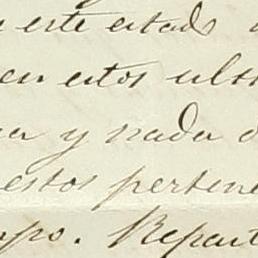 este estado
en estos ult
a y nada
estos pertene
mpo. Repart